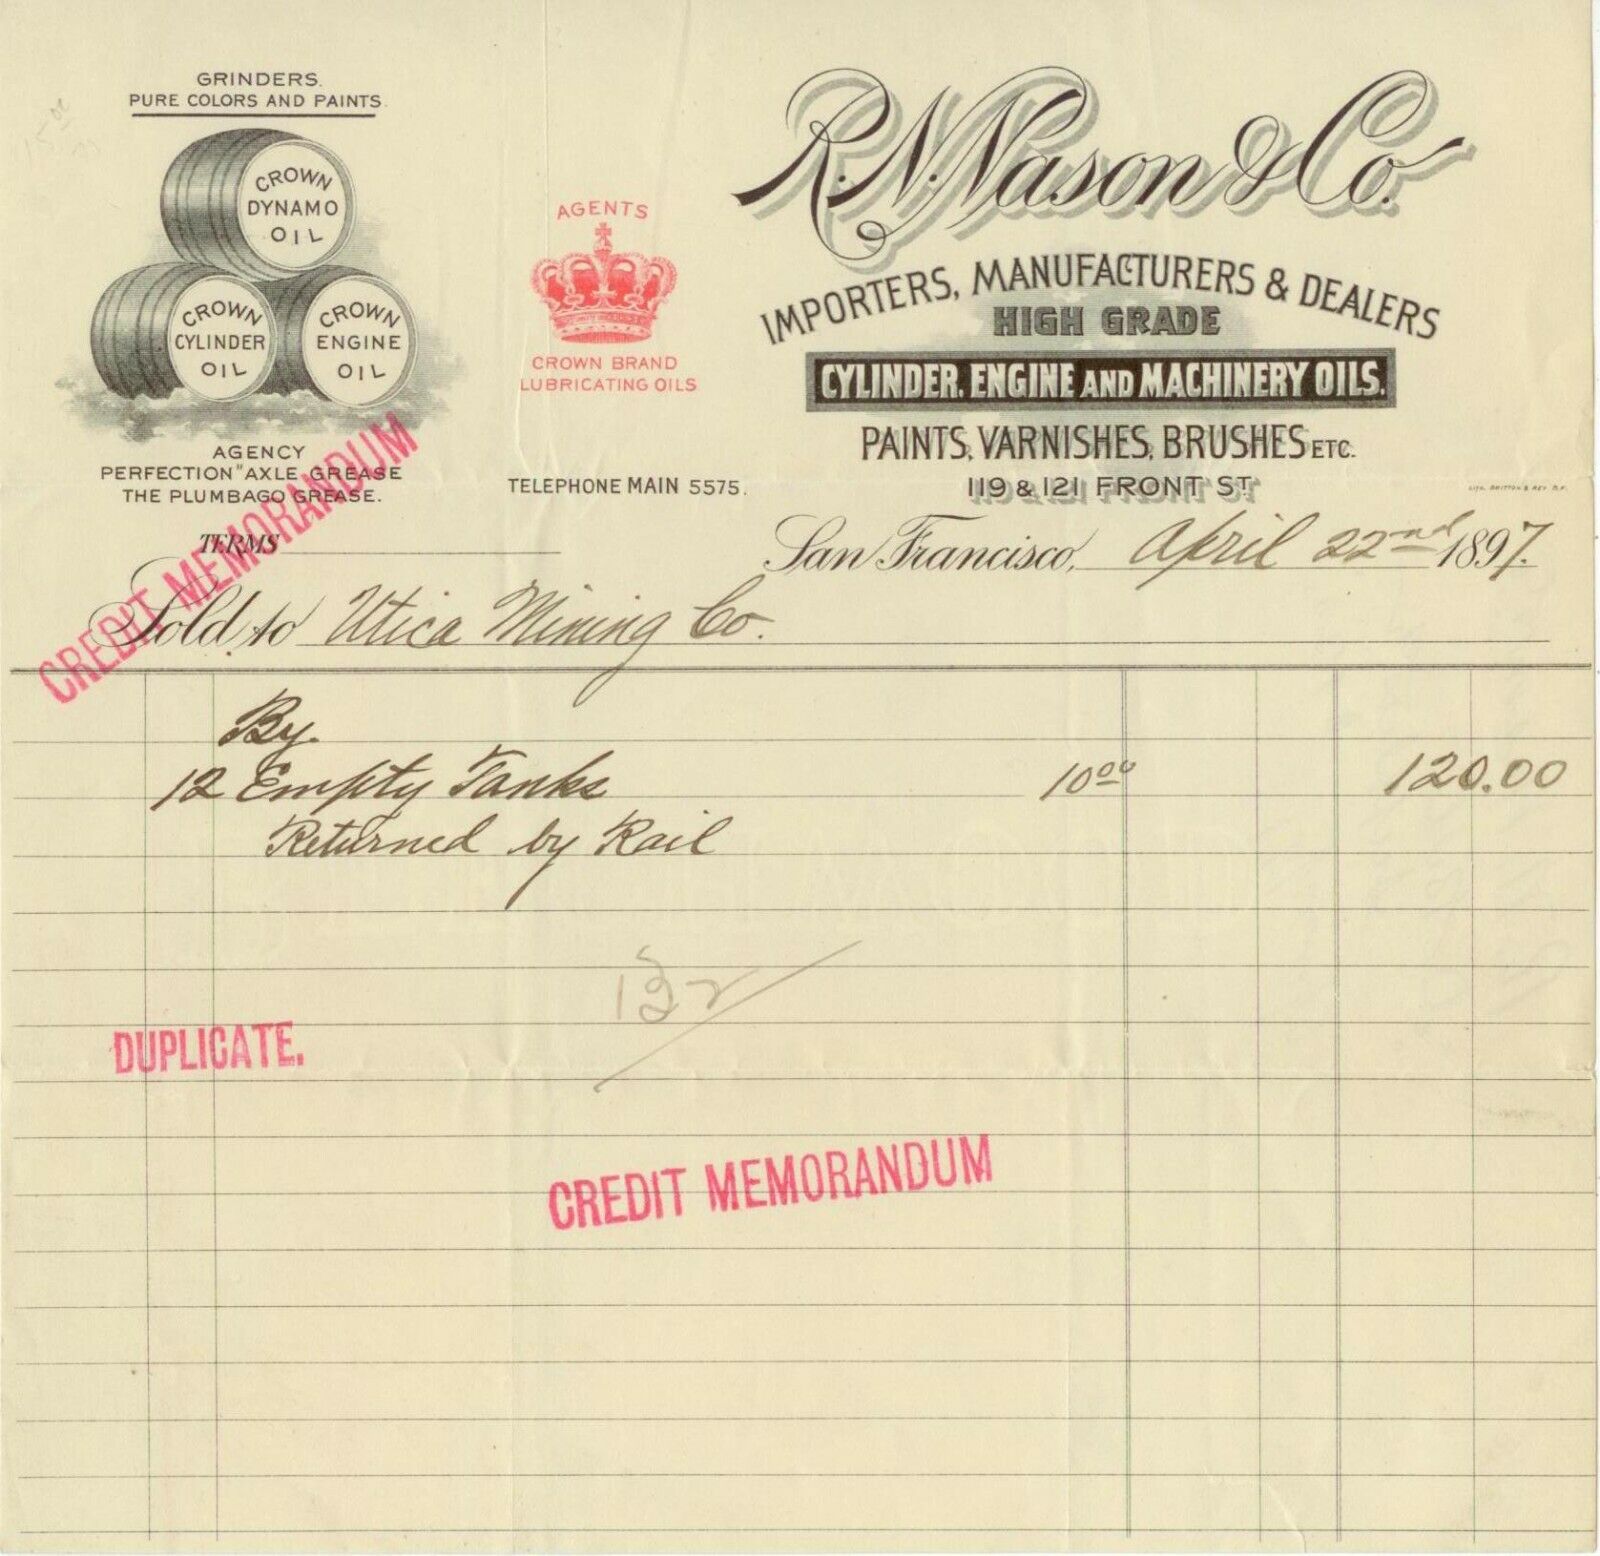 GRINDERS.
PURE COLORS AND PAINTS.
CROWN
DYNAMO
OIL
CROWN
CYLINDER
OIL
CROWN
ENGINE
OIL
AGENCY
PERFECTION" AXLE GREASE
THE PLUMBAGO GREASE.
AGENTS
CROWN BRAND
LUBRICATING OILS
TELEPHONE MAIN 5575.
R. N. Nason & Co.
IMPORTERS, MANUFACTURERS & DEALERS
HIGH GRADE
CYLINDER, ENGINE AND MACHINERY OILS.
PAINTS, VARNISHES, BRUSHES ETC.
119 & 121 FRONT ST.
LITH. BRITTON & REY. S.F.
CREDIT MEMORANDUM
TERMS
San Francisco, April 22nd 1897.
Sold to Utica Mining Co.
By
12 Empty Tanks 10.00 120.00
Returned by Rail
132
DUPLICATE.
CREDIT MEMORANDUM